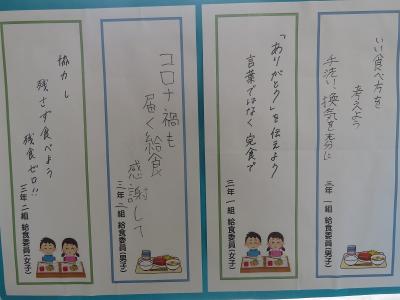 いい食べ方を
考えよう
手洗い、換気を充分に
三年 一組 給食委員(男子)
「ありがとう」を伝えよう
言葉ではなく 完食で
三年 一組 給食委員(女子)
コロナ禍も
届く給食
感謝して
三年 二組 給食委員(男子)
協力し
残さず食べよう
残食ゼロ!!
三年 二組 給食委員(女子)